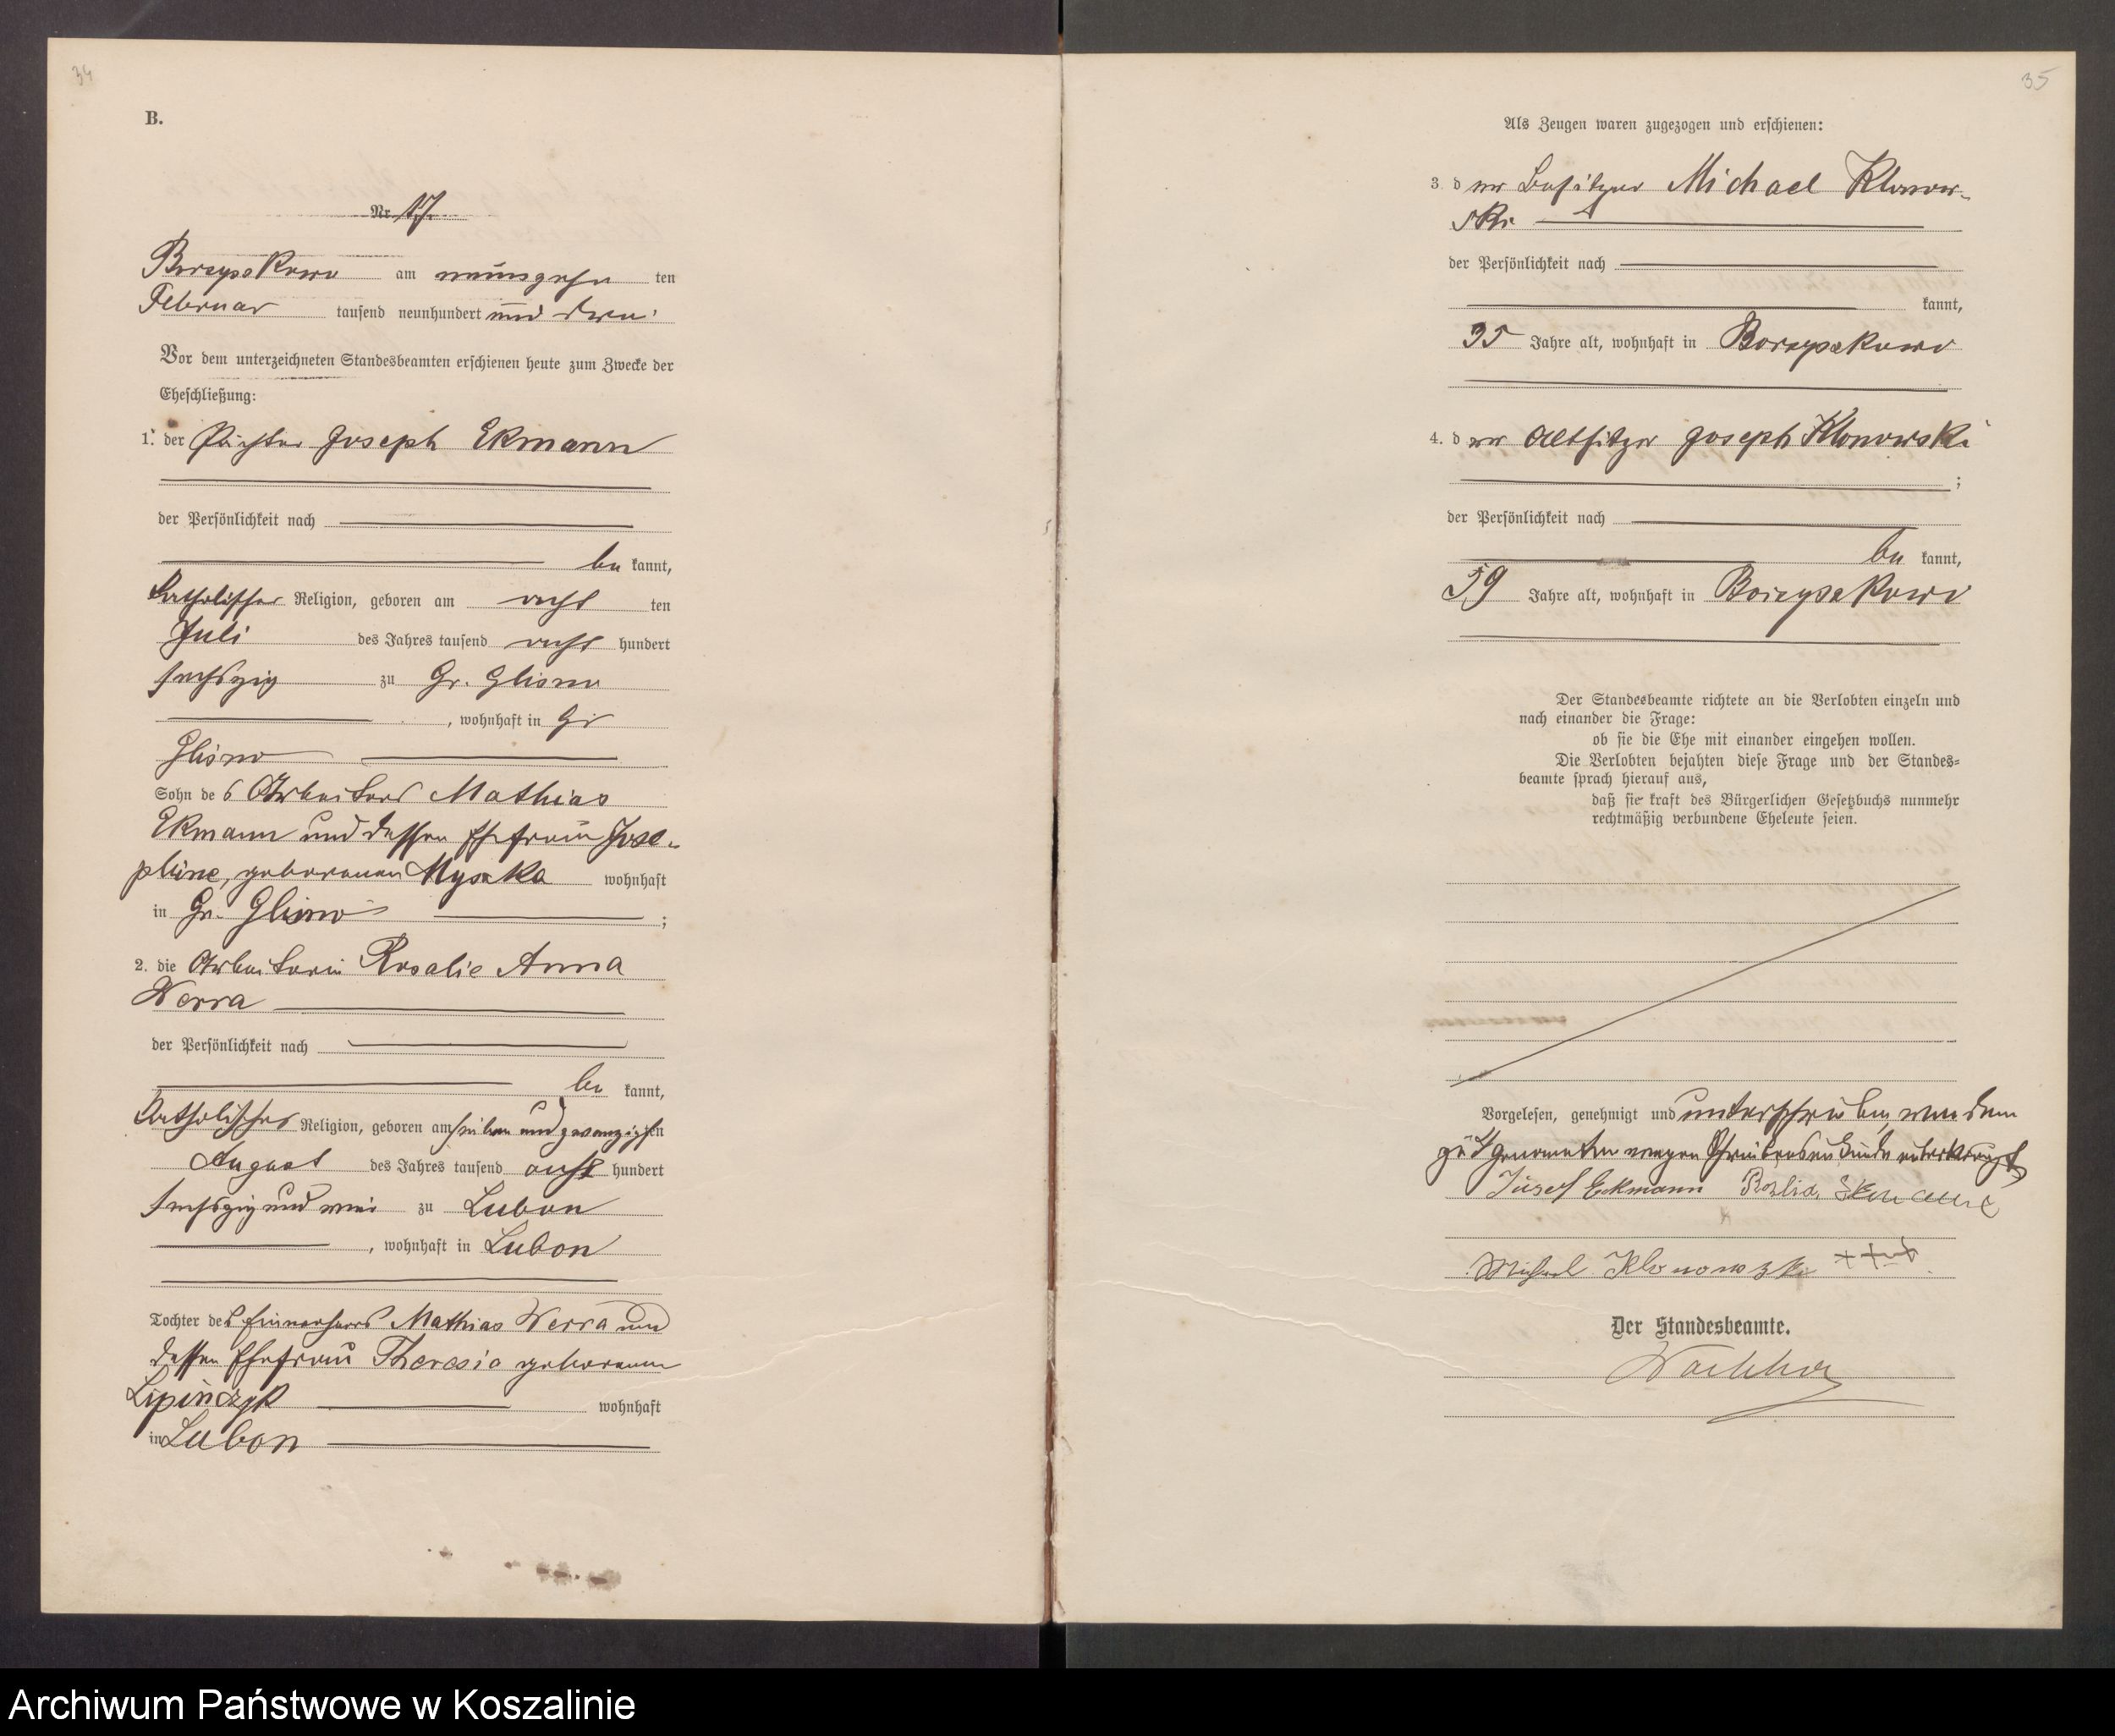 34
B.
Nr. 17.
Borzyskowo am neunzehn ten
Februar tausend neunhundert und drei
Vor dem unterzeichneten Standesbeamten erschienen heute zum Zwecke der
Eheschließung:
1. der Pächter Joseph Ekmann
der Persönlichkeit nach
be kannt,
katholischer Religion, geboren am acht ten
Juli des Jahres tausend acht hundert
sechszig zu Gr. Glisno
, wohnhaft in Gr
Glisno
Sohn des Arbeiters Mathias
Ekmann und dessen Ehefrau Jose-
phine, geborenen Mysaka wohnhaft
in Gr. Glisno ;
2. die Arbeiterin Rosalie Anna
Werra
der Persönlichkeit nach
be kannt,
katholischer Religion, geboren am sieben und zwanzigsten
August des Jahres tausend acht hundert
sechszig und zu Lubon
, wohnhaft in Lubon
Tochter des Einwohners Mathias Werra und
dessen Ehefrau Theresia geborenen
Lipinczyk wohnhaft
in Lubon
35
Als Zeugen waren zugezogen und erschienen:
3. der Besitzer Michael Klonow-
ski
der Persönlichkeit nach
kannt,
35 Jahre alt, wohnhaft in Borzyskowo
4. der Altsitzer Joseph Klonowski
;
der Persönlichkeit nach
be kannt,
59 Jahre alt, wohnhaft in Borzyskowo
Der Standesbeamte richtete an die Verlobten einzeln und
nach einander die Frage:
ob sie die Ehe mit einander eingehen wollen.
Die Verlobten bejahten diese Frage und der Standes-
beamte sprach hierauf aus,
daß sie kraft des Bürgerlichen Gesetzbuchs nunmehr
rechtmäßig verbundene Eheleute seien.
Vorgelesen, genehmigt und unterschrieben, von dem
zu 4 genannten wegen Schreibensunkunde unterkreuzt
Jüsef Eckmann Rozlia
Michael Klonowski +++
Der Standesbeamte.
Archiwum Państwowe w Koszalinie